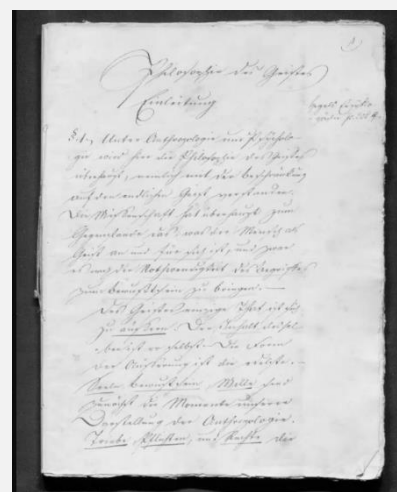 Philosophie des Geistes
Einleitung
Hegels Encyklo
§ 1. Unter Anthropologie und Psycholo-
gie wird hier die Philosophie des Geistes
überhaupt, nemlich mit der Beschränkung
auf den endlichen Geist verstanden.
Die Wissenschaft hat überhaupt zum
Gegenstande das, was der Mensch als
Geist an und für sich ist, und zwar
es nach der Nothwendigkeit des Begriffes
zum Bewußtsein zu bringen. —
Des Geistes einzige That ist sich
zu äußern. Der Inhalt dessel-
ben ist er selbst. Die Form
der Äußerung ist die
Seele Bewußtsein Wille sind
zunächst die Momente unserer
Darstellung der Anthropologie.
Triebe, Pflichten, und Rechte der